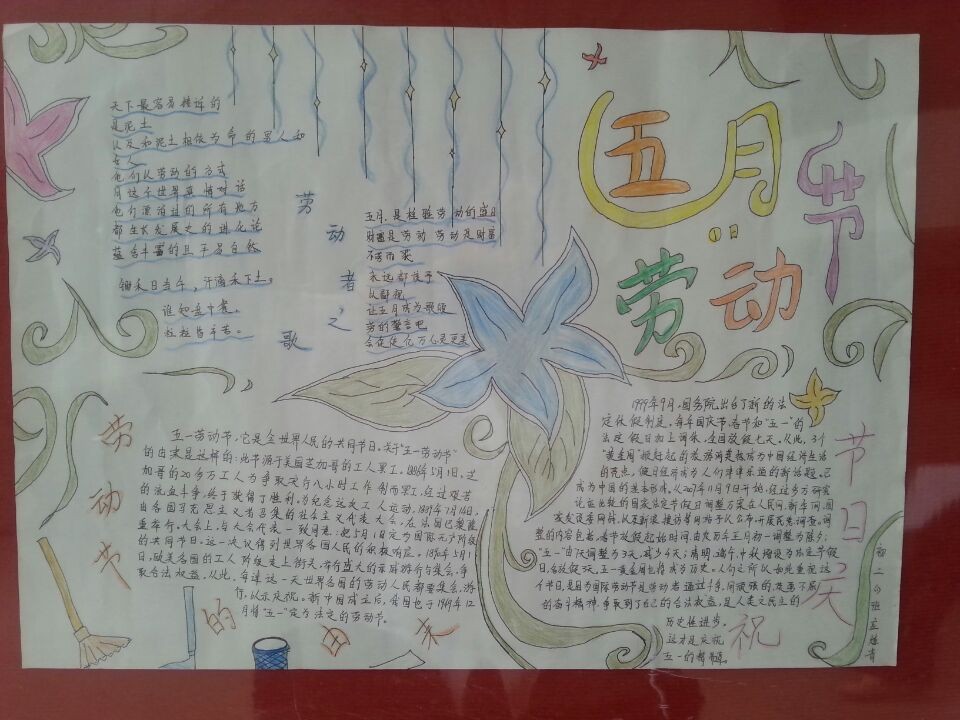 五月
1日
劳动
节
天下最容易转译的
是泥土
以及和泥土相依为命的男人和
女人
他们以劳动的方式
用这个世界来情对话
他们漂泊过的所有地方
都生长发展史的进化论
蕴含丰富的且平易自然
锄禾日当午，汗滴禾下土。
谁知盘中餐，
粒粒皆辛苦。
劳动者之歌
五月，是检验劳动的盛日
财富是劳动 劳动是财富
不劳而获
永远都该予
以鄙视
让五月成为歌颂
劳的誓言吧
会促使亿万心灵更美
劳动节的由来
五一劳动节，它是全世界人民的共同节日。关于"五一劳动节"
的由来是这样的：此节源于美国芝加哥的工人罢工。1886年5月1日，芝
加哥的20多万工人为争取实行八小时工作制而罢工，经过艰苦
的流血斗争，终于获得了胜利。为纪念这次工人运动，1889年7月14日，
由各国马克思主义者召集的社会主义代表大会，在法国巴黎隆
重举行。大会上，与会代表一致同意：把5月1日定为国际无产阶级
的共同节日。这一决议得到世界各国人民的积极响应。1890年5月1
日，欧美各国的工人阶级走上街头，举行盛大的示威游行与集会，争
取合法权益。从此，每逢这一天世界各国的劳动人民都要集会，游
行，以示庆祝。新中国成立后，我国也于1949年12
月将"五一"定为法定的劳动节。
1999年9月，国务院出台了新的法
定休假制度，每年国庆节、春节和"五一"的
法定假日加上调休，全国放假七天。从此，3个
"黄金周"掀起的旅游消费热成为中国经济生活
的亮点，假日经济成为人们津津乐道的新话题。已
成为中国的基本形成。从2007年11月9日开始，经过多方研究
论证出较的国家法定节假日调整方案在人民网、新华网、国
家发改委网站，以及新浪、搜访等网站予以公布，开展民意调查。调
整的内容包括：春节放假起始时间由农历年正月初一调整为除夕；
"五一"由7天调整为3天，减少4天；清明、端午、中秋增设为法定节假
日，各放假1天，五一黄金周也将成为历史。人们之所以如此重视这
个节日，是因为国际劳动节是劳动者通过斗争，用顽强的、英勇不屈
的奋斗精神，争取到了自己的合法权益，是人类文明民主的
历史性进步。
这才是庆祝
五一的精髓。
节日庆祝